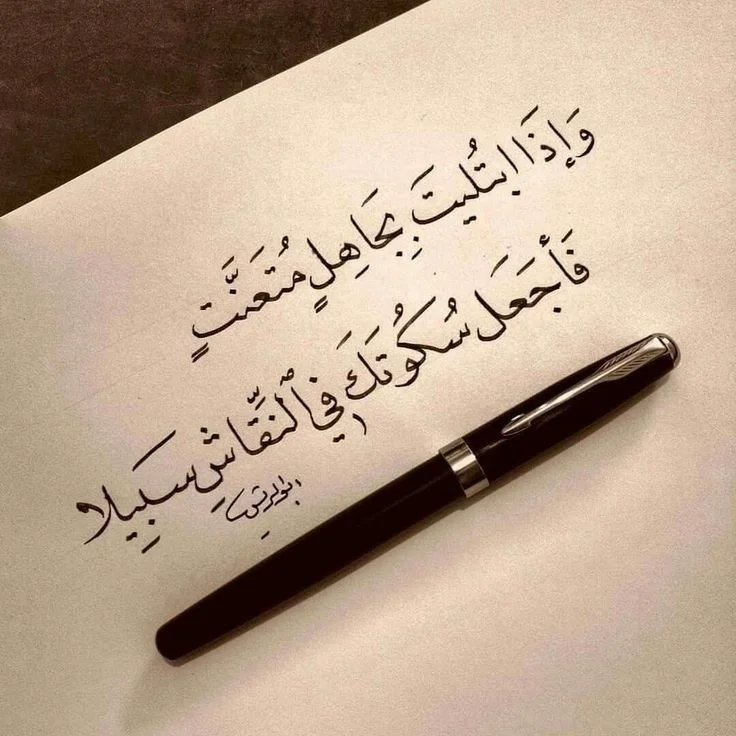 وَإِذَا ابتُليتَ بِجَاهِلٍ مُتَعَنَّتٍ
فَأجعَل سُكُوتَكَ في ٱلنقَّاشِ سَبِيلا